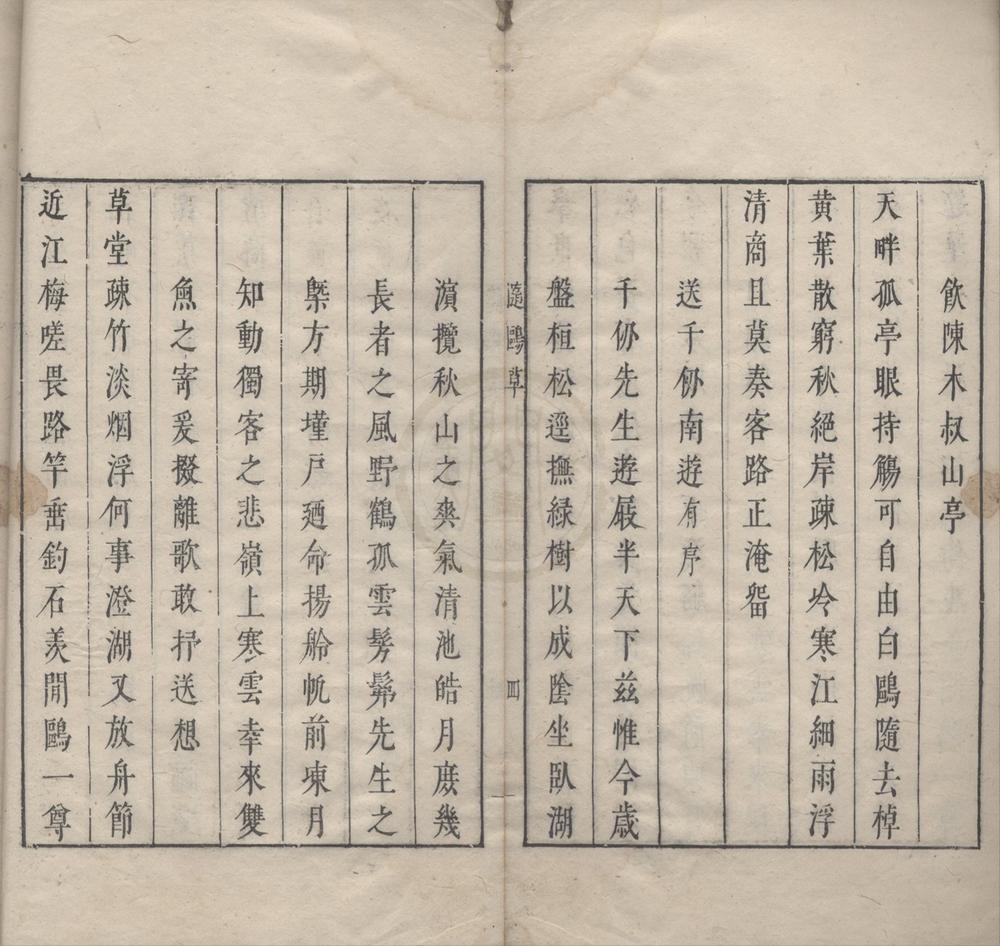 飲陳木叔山亭
天畔孤亭眼持觴可自由白鷗隨去棹
黃葉散窮秋絕岸疎松冷寒江細雨浮
清商且莫奏客路正淹畱
送千仭南遊有序
千仭先生遊屐半天下茲惟今歲
盤桓松逕撫綠樹以成陰坐臥湖
隨鷗草
四
濵攬秋山之爽氣清池皓月庻幾
長者之風野鶴孤雲髣髴先生之
槩方期墐戶廼命揚舲帆前凍月
知動獨客之悲嶺上寒雲幸來雙
魚之寄爰掇離歌敢抒送想
草堂疎竹淡烟浮何事澄湖又放舟節
近江梅嗟畏路竿垂釣石羨閒鷗一尊